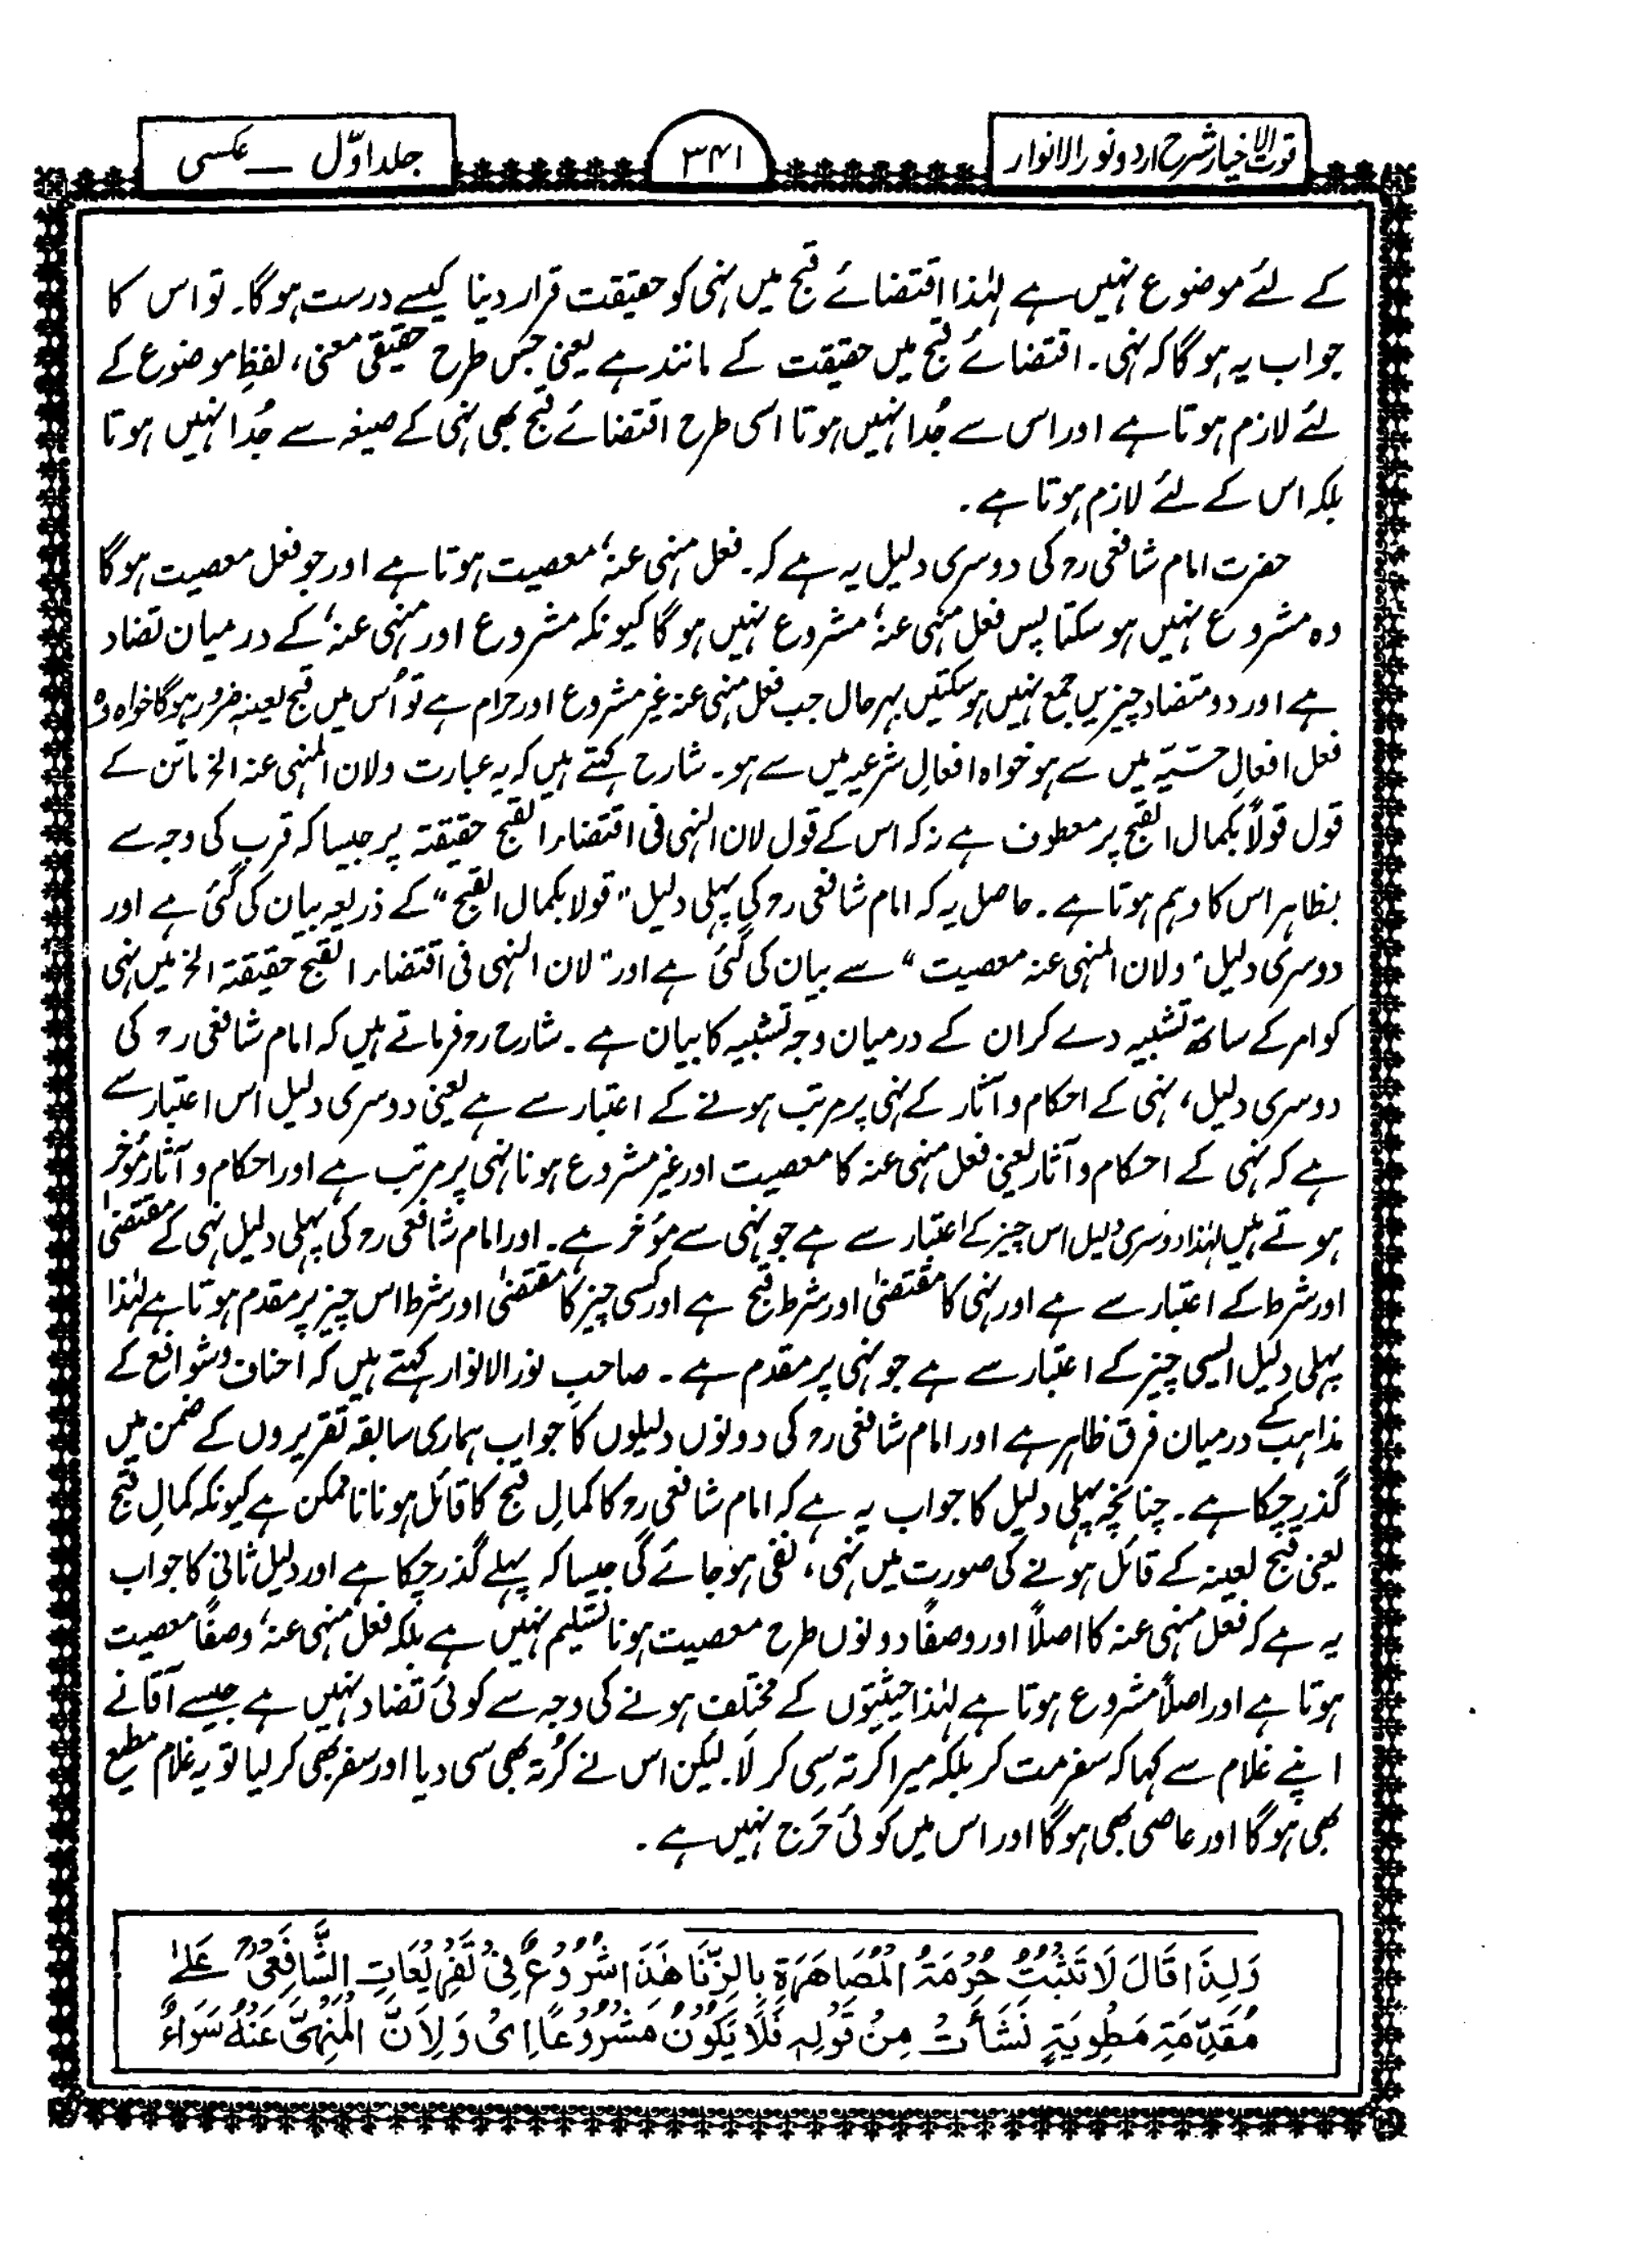 قوت الاخیار شرح اردو نور الانوار
۳۴۱
جلد اوّل — عکسی
کے لئے موضوع نہیں ہے لہٰذا اقتضائے قبح میں نہی کو حقیقت قرار دینا کیسے درست ہوگا۔ تو اس کا
جواب یہ ہوگا کہ نہی۔ اقتضائے قبح میں حقیقت کے مانند ہے یعنی جس طرح حقیقی معنی، لفظِ موضوع کے
لئے لازم ہوتا ہے اور اس سے جُدا نہیں ہوتا اسی طرح اقتضائے قبح بھی نہی کے صیغہ سے جُدا نہیں ہوتا
بلکہ اس کے لئے لازم ہوتا ہے۔
حضرت امام شافعی رح کی دوسری دلیل یہ ہے کہ۔ فعل منہی عنہٗ معصیت ہوتا ہے اور جو فعل معصیت ہوگا
وہ مشروع نہیں ہو سکتا پس فعل منہی عنہٗ مشروع نہیں ہوگا کیونکہ مشروع اور منہی عنہٗ کے درمیان تضاد
ہے اور دو متضاد چیزیں جمع نہیں ہو سکتیں بہر حال جب فعل منہی عنہ غیر مشروع اور حرام ہے تو اُس میں قبح لعینہٖ ضرور ہوگا خواہ وہ
فعل افعالِ حسّیّہ میں سے ہو خواہ افعالِ شرعیہ میں سے ہو۔ شارح کہتے ہیں کہ یہ عبارت ولان المنہی عنہ الخ ماتن کے
قول قولاً بکمال القبح پر معطوف ہے نہ کہ اس کے قول لان النہی فی اقتضاء القبح حقیقۃ پر جیسا کہ قرب کی وجہ سے
بظاہر اس کا وہم ہوتا ہے۔ حاصل یہ کہ امام شافعی رح کی پہلی دلیل "قولا بکمال القبح" کے ذریعہ بیان کی گئی ہے اور
دوسری دلیل "ولان المنہی عنہ معصیت" سے بیان کی گئی ہے اور "لان النہی فی اقتضاء القبح حقیقۃ الخ میں نہی
کو امر کے ساتھ تشبیہ دے کر ان کے درمیان وجہ تشبیہ کا بیان ہے۔ شارح رح فرماتے ہیں کہ امام شافعی رح کی
دوسری دلیل، نہی کے احکام و آثار کے نہی پر مرتب ہونے کے اعتبار سے ہے یعنی دوسری دلیل اس اعتبار سے
ہے کہ نہی کے احکام و آثار یعنی فعل منہی عنہ کا معصیت اور غیر مشروع ہونا نہی پر مرتب ہے اور احکام و آثار مؤخر
ہوتے ہیں لہٰذا دوسری دلیل اس چیز کے اعتبار سے ہے جو نہی سے مؤخر ہے۔ اور امام شافعی رح کی پہلی دلیل نہی کے مقتضیٰ
اور شرط کے اعتبار سے ہے اور نہی کا مقتضیٰ اور شرط قبح ہے اور کسی چیز کا مقتضیٰ اور شرط اس چیز پر مقدم ہوتا ہے لہٰذا
پہلی دلیل ایسی چیز کے اعتبار سے ہے جو نہی پر مقدم ہے۔ صاحبِ نور الانوار کہتے ہیں کہ احناف و شوافع کے
مذاہب کے درمیان فرق ظاہر ہے اور امام شافعی رح کی دونوں دلیلوں کا جواب ہماری سابقہ تقریروں کے ضمن میں
گذر چکا ہے۔ چنانچہ پہلی دلیل کا جواب یہ ہے کہ امام شافعی رح کا کمالِ قبح کا قائل ہونا ناممکن ہے کیونکہ کمالِ قبح
یعنی قبح لعینہ کے قائل ہونے کی صورت میں نہی، نفی ہو جائے گی جیسا کہ پہلے گذر چکا ہے اور دلیل ثانی کا جواب
یہ ہے کہ فعل منہی عنہ کا اصلاً اور وصفًا دونوں طرح معصیت ہونا تسلیم نہیں ہے بلکہ فعل منہی عنہٗ وصفًا معصیت
ہوتا ہے اور اصلاً مشروع ہوتا ہے لہٰذا حیثیتوں کے مختلف ہونے کی وجہ سے کوئی تضاد نہیں ہے جیسے آقا نے
اپنے غلام سے کہا کہ سفر مت کر بلکہ میرا کرتہ سِی کر لَا۔ لیکن اس نے کُرتہ بھی سی دیا اور سفر بھی کر لیا تو یہ غلام مطیع
بھی ہوگا اور عاصی بھی ہوگا اور اس میں کوئی حَرَج نہیں ہے۔
وَلِذَا قَالَ لَا تَثْبُتُ حُرْمَةُ الْمُصَاهَرَةِ بِالزِّنَا هٰذَا شُرُوْعٌ فِیْ تَفْرِیْعَاتِ الشَّافِعِیِّ رح عَلٰے
مُقَدِّمَةٍ مَطْوِیَّةٍ نَشَأَتْ مِنْ قَوْلِہٖ فَلَا یَکُوْنُ مَشْرُوْعًا اِیْ وَلِاَنَّ الْمَنْہِیَّ عَنْہُ سَوَاءٌ